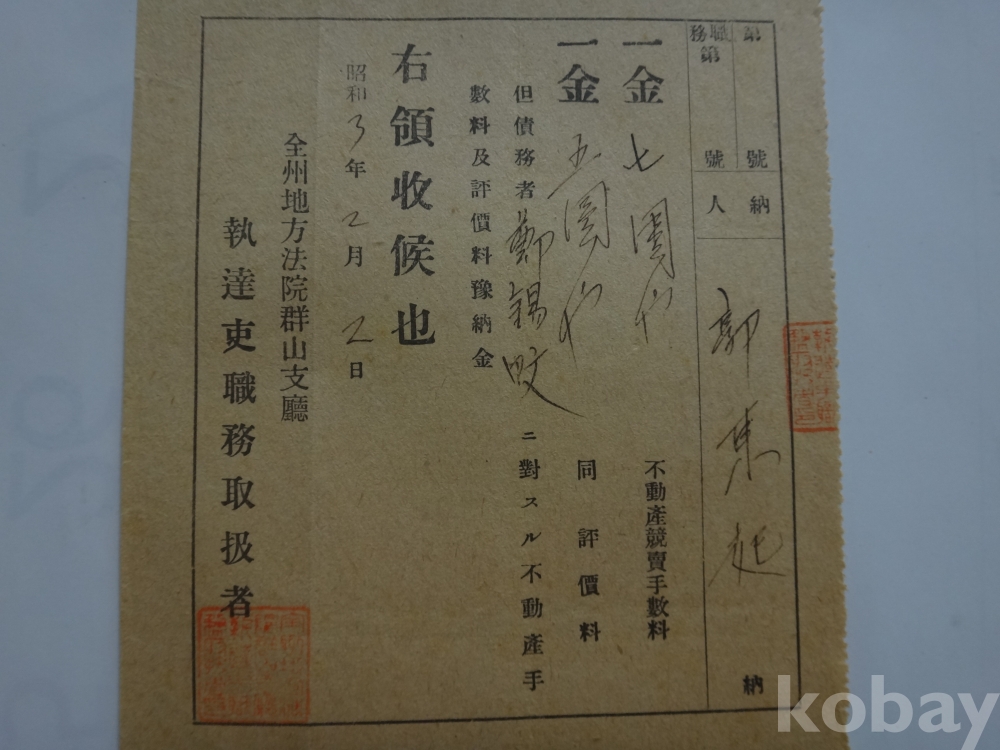 第 號
職務第 號
納人 郭東起 納
一金 七圓也 不動產競賣手數料
一金 五圓也 同評價料
但債務者 鄭錫 ニ對スル不動產手
數料及評價料豫納金
右領收候也
昭和3年2月2日
全州地方法院群山支廳
執達吏職務取扱者
kobay